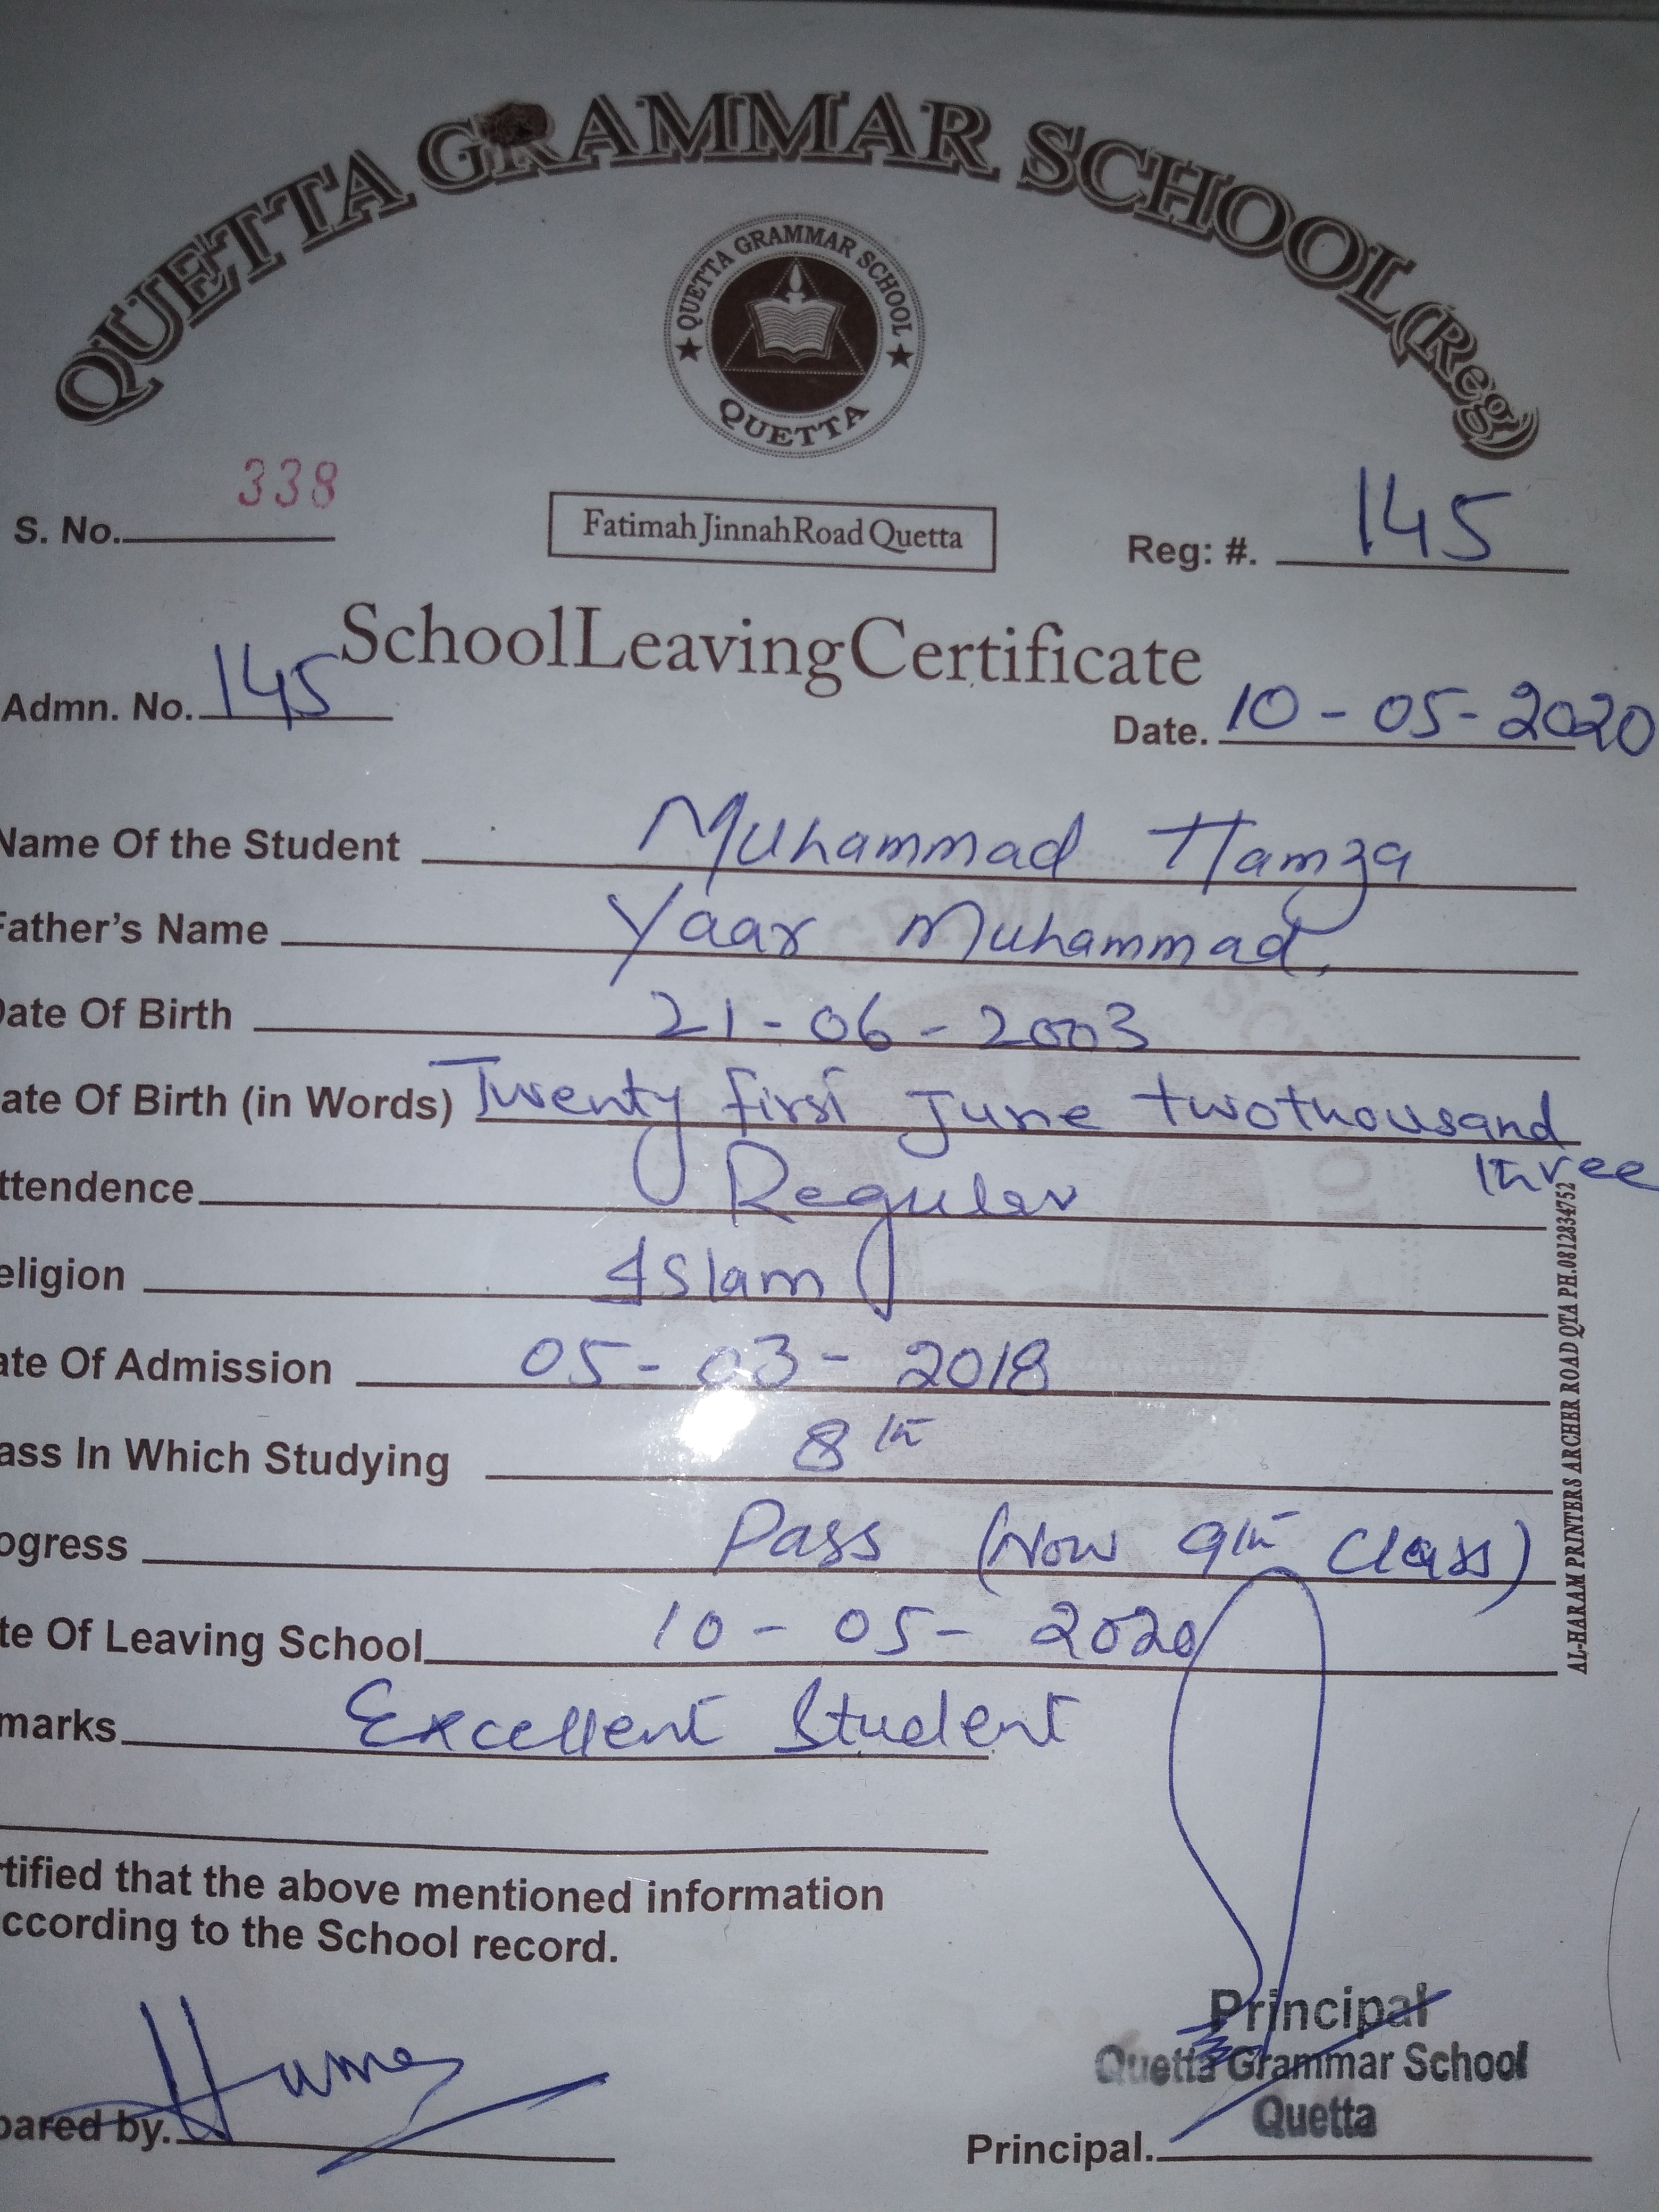 QUETTA GRAMMAR SCHOOL (Reg)
QUETTA GRAMMAR SCHOOL
QUETTA
S. No. 338
Fatimah Jinnah Road Quetta
Reg: #. 145
School Leaving Certificate
Admn. No. 145
Date. 10-05-2020
Name Of the Student Muhammad Hamza
Father's Name Yaar Muhammad.
Date Of Birth 21-06-2003
ate Of Birth (in Words) Twenty first June twothousand
three
ttendence Reguler
eligion Islam
ate Of Admission 05-03-2018
ass In Which Studying 8th
ogress Pass (Now 9th Class)
te Of Leaving School 10-05-2020
marks Excellent Student
rtified that the above mentioned information
ccording to the School record.
pared by.
Principal
Quetta Grammar School
Quetta
Principal.
AL-HARAM PRINTERS ARCHER ROAD QTA PH.0812834752